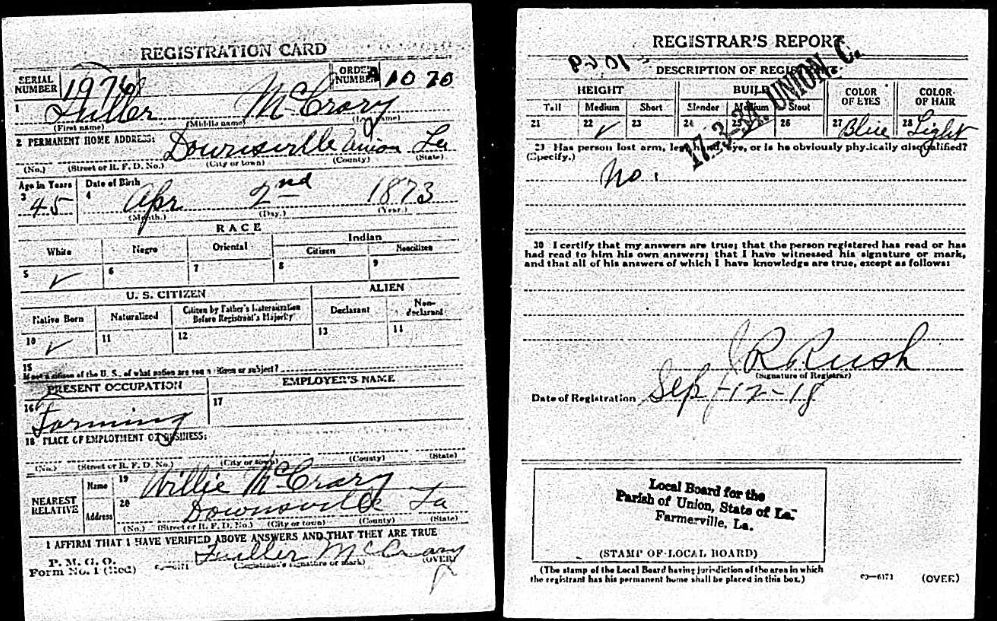 REGISTRATION CARD
SERIAL NUMBER 1976 ORDER NUMBER A 1070
1 Fuller McCrary
(First name) (Middle name) (Last name)
2 PERMANENT HOME ADDRESS:
Downsville Union La
(No.) (Street or R. F. D. No.) (City or town) (County) (State)
Age in Years Date of Birth
3 45 4 Apr 2nd 1873
(Month.) (Day.) (Year.)
RACE
White Negro Oriental Indian
Citizen
5 ✓ 6 7 8 9
U. S. CITIZEN ALIEN
Native Born Naturalized Citizen by Father's Naturalization Before Registrant's Majority Declarant Non-declarant
10 ✓ 11 12 13 14
15
If not a citizen of the U. S., of what nation are you a citizen or subject?
PRESENT OCCUPATION EMPLOYER'S NAME
16 Farming 17
18 PLACE OF EMPLOYMENT OR BUSINESS:
(No.) (Street or R. F. D. No.) (City or town) (County) (State)
NEAREST RELATIVE Name 19 Willie McCrary
Address 20 Downsville La
(No.) (Street or R. F. D. No.) (City or town) (County) (State)
I AFFIRM THAT I HAVE VERIFIED ABOVE ANSWERS AND THAT THEY ARE TRUE
P. M. G. O.
Form No. 1 (Red) Fuller McCrary
(Registrant's signature or mark) (OVER)
REGISTRAR'S REPORT
17-3-34 UNION C.
DESCRIPTION OF REGISTRANT
HEIGHT BUILD COLOR OF EYES COLOR OF HAIR
Tall Medium Short Slender Medium Stout
21 22 ✓ 23 24 25 26 27 Blue 28 Light
29 Has person lost arm, leg, hand, eye, or is he obviously physically disqualified?
(Specify.)
No.
30 I certify that my answers are true; that the person registered has read or has
had read to him his own answers; that I have witnessed his signature or mark,
and that all of his answers of which I have knowledge are true, except as follows:
J R Rush
(Signature of Registrar)
Date of Registration Sep-12-18
Local Board for the
Parish of Union, State of La.
Farmerville, La.
(STAMP OF LOCAL BOARD)
(The stamp of the Local Board having jurisdiction of the area in which
the registrant has his permanent home shall be placed in this box.)
03-6171 (OVER)